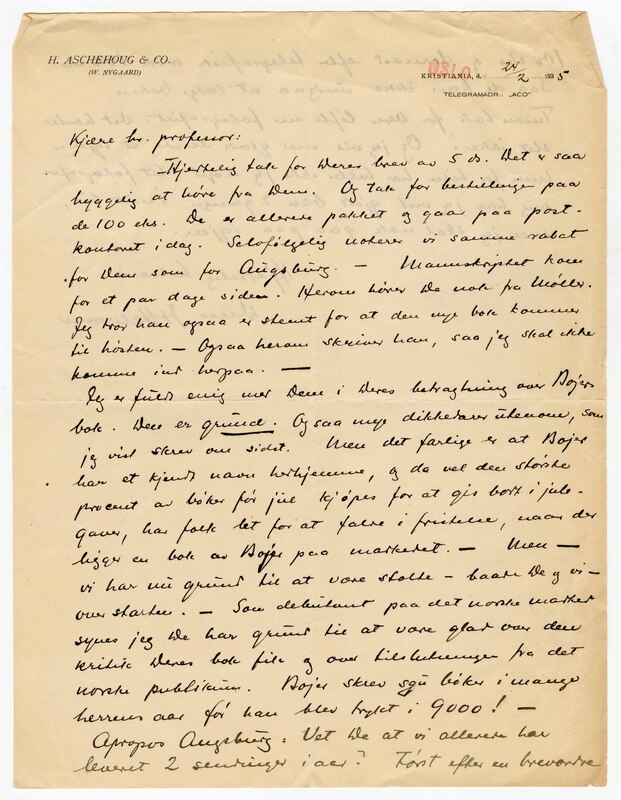 H. ASCHEHOUG & CO.
(W. NYGAARD)
OSLO
KRISTIANIA, d. 24/2 1925
TELEGRAMADR.: „ACO"
Kjære hr. professor:
Hjertelig tak for Deres brev av 5 ds. Det er saa
hyggelig at höre fra Dem. Og tak for bestillingen paa
de 100 eks. De er allerede pakket og gaar paa post-
kontoret idag. Selvfölgelig noterer vi samme rabat
for Dem som for Augsburg. — Manuskriptet kom
for et par dage siden. Herom hörer De nok fra Möller.
Jeg tror han ogsaa er stemt for at den nye bok kommer
til hösten. — Ogsaa herom skriver han, saa jeg skal ikke
komme ind herpaa. —
Jeg er fuldt enig med Dem i Deres betragtning over Bojers
bok. Den er grund. Ogsaa mye dikkedarer utenom, som
jeg vist skrev om sidst. Men det farlige er at Bojer
har et kjendt navn herhjemme, og da vel den störste
procent av böker för jul kjöpes for at gis bort i jule-
gaver, har folk let for at falde i fristelse, naar der
ligger en bok av Bojer paa markedet. — Men —
vi har nu grund til at være stolte — baade De og vi —
over starten. — Som debutant paa det norske marked
synes jeg De har grund til at være glad over den
kritik Deres bok fik og over tilslutningen fra det
norske publikum. Bojer skrev sgu böker i mange
herrens aar för han blev trykt i 9000! —
Apropos Augsburg: Vet De at vi allerede har
leveret 2 sendinger i aar? Först efter en brevordre